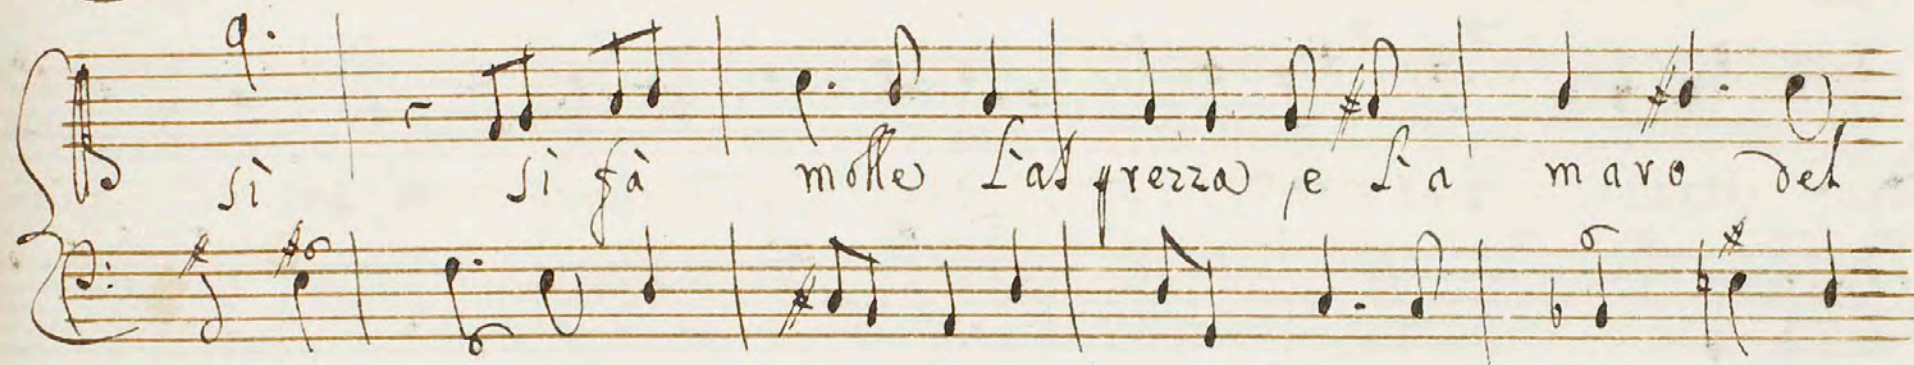 sì sì fà molle l'asprezza e l'a maro del